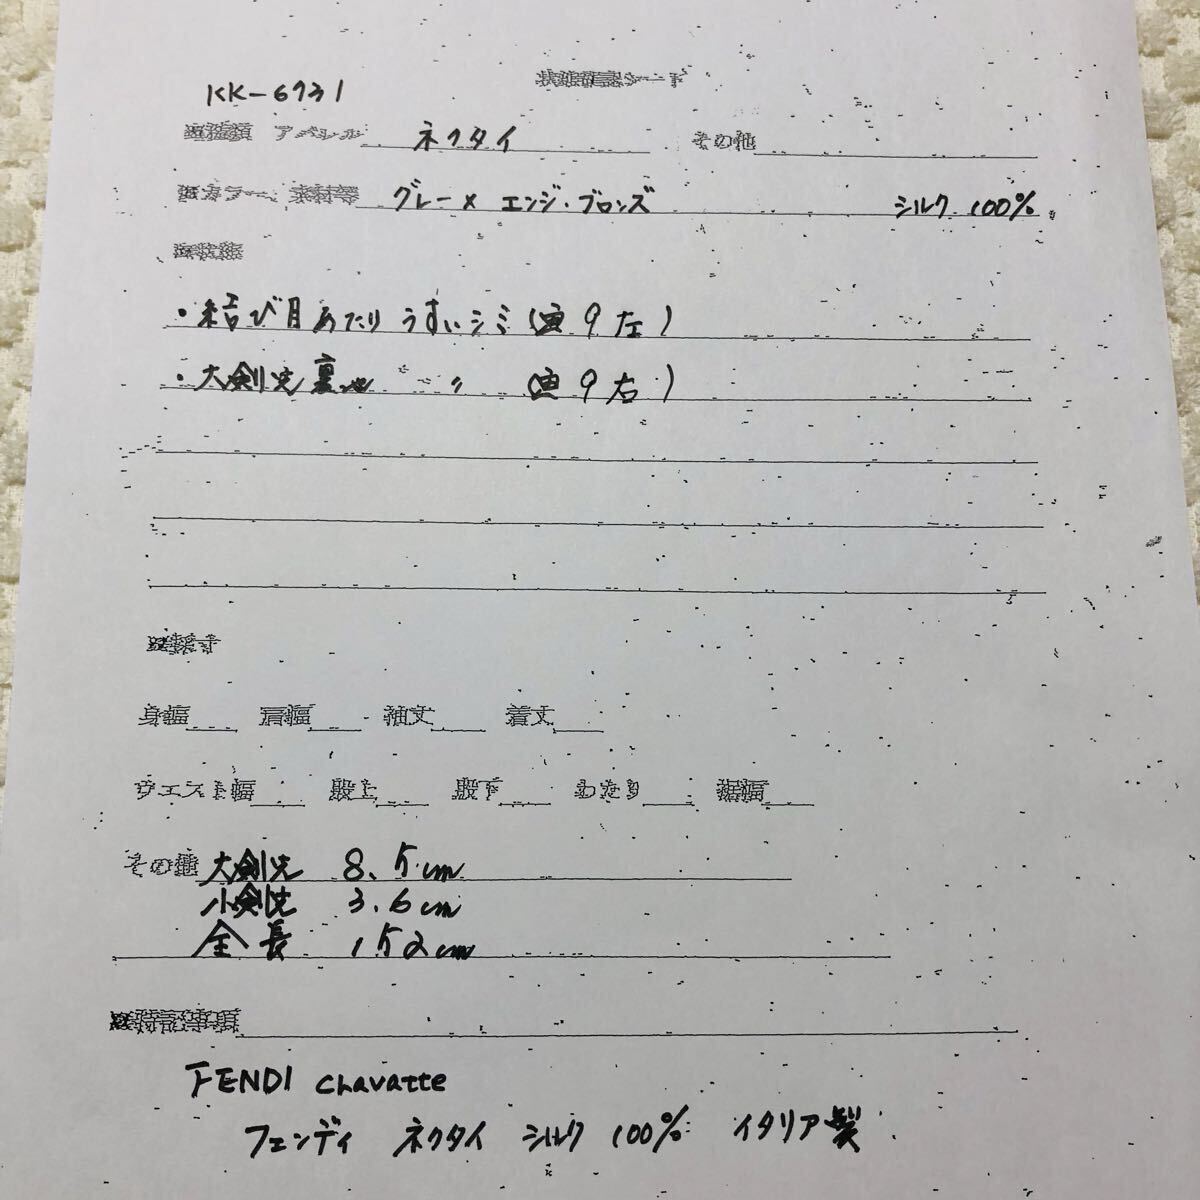 状態確認シート
KK-6731
種類 アパレル ネクタイ その他
カラー、素材等 グレー× エンジ・ブロンズ シルク 100%
状態
・結び目あたり うすいシミ (画9左)
・大剣先裏地 〃 (画9右)
採寸
身幅 肩幅 袖丈 着丈
ウエスト幅 股上 股下 わたり 裾幅
その他 大剣先 8.5cm
小剣先 3.6cm
全長 152cm
特記事項
FENDI Chavatte
フェンディ ネクタイ シルク 100% イタリア製